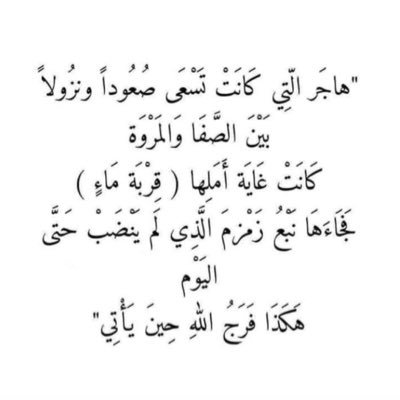 "هاجَر الّتِي كَانَتْ تَسْعَى صُعُوداً ونزُولاً
بَيْنَ الصَّفَا وَالمَرْوَة
كَانَتْ غَايَة أَمَلِها ( قِرْبَة مَاءٍ )
فَجَاءَهَا نَبْعُ زَمْزمَ الَّذِي لَم يَنْضَبْ حَتَّى
اليَوْم
هَكَذَا فَرَجُ اللهِ حِينَ يَأْتِي"